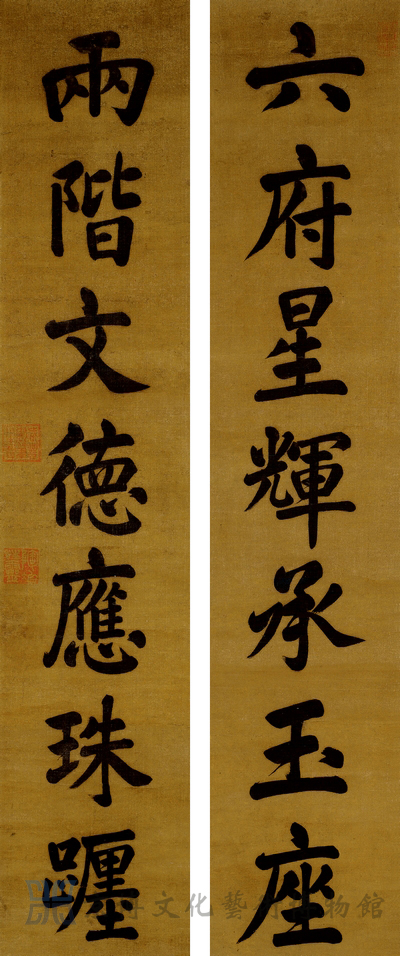 六府星輝承玉座
兩階文德應珠躔
文化藝術博物館